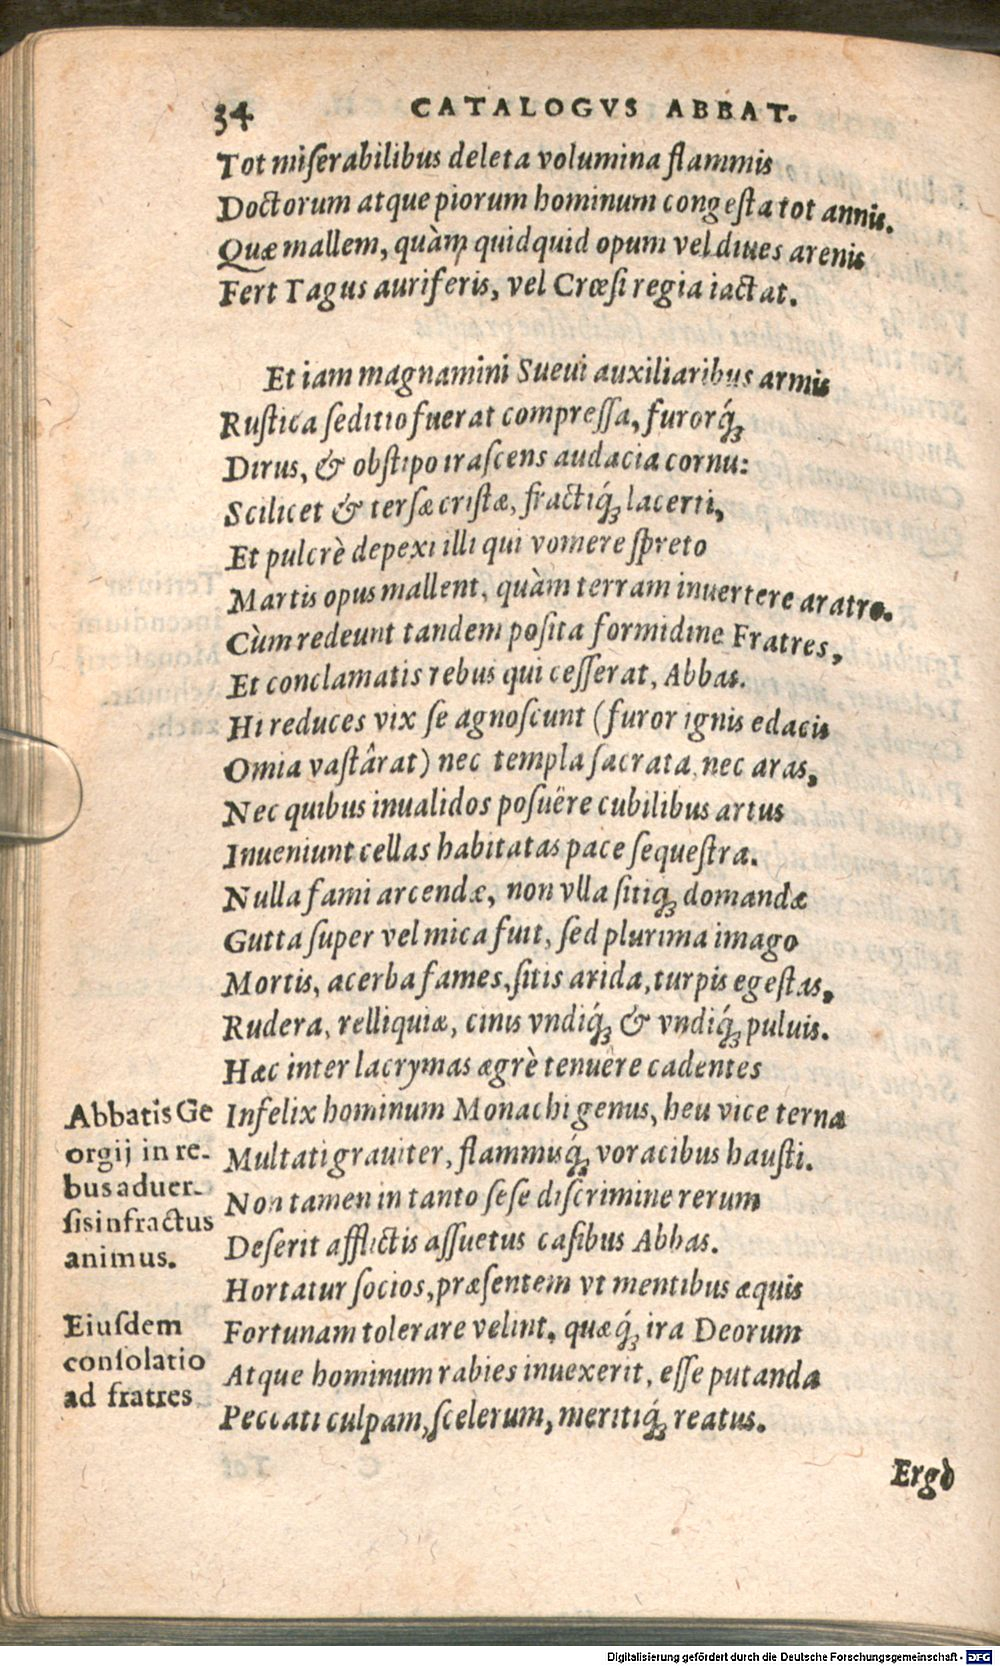 34 CATALOGVS ABBAT.
Tot miſerabilibus deleta volumina flammis
Doctorum atque piorum hominum congeſta tot annis.
Quæ mallem, quàm quidquid opum vel diues arenis
Fert Tagus auriferis, vel Crœſi regia iactat.
Et iam magnamini Sueui auxiliaribus armis
Ruſtica ſeditio fuerat compreſſa, furorq́;
Dirus, & obſtipo iraſcens audacia cornu:
Scilicet & terſæ criſtæ, fractiq́; lacerti,
Et pulcrè depexi illi qui vomere ſpreto
Martis opus mallent, quàm terram inuertere aratro.
Cùm redeunt tandem poſita formidine Fratres,
Et conclamatis rebus qui ceſſerat, Abbas.
Hi reduces vix ſe agnoſcunt (furor ignis edacis
Omia vaſtârat) nec templa ſacrata, nec aras,
Nec quibus inualidos poſuëre cubilibus artus
Inueniunt cellas habitatas pace ſequeſtra.
Nulla fami arcendæ, non vlla ſitiq; domandæ
Gutta ſuper vel mica fuit, ſed plurima imago
Mortis, acerba fames, ſitis arida, turpis egeſtas,
Rudera, relliquiæ, cinis vndiq́; & vndiq́; puluis.
Hæc inter lacrymas ægrè tenuêre cadentes
Infelix hominum Monachigenus, heu vice terna
Multati grauiter, flammisq́; voracibus hauſti.
Non tamen in tanto ſeſe diſcrimine rerum
Deſerit afflictis aſſuetus caſibus Abbas.
Hortatur ſocios, præſentem vt mentibus æquis
Fortunam tolerare velint, quæq́; ira Deorum
Atque hominum rabies inuexerit, eſſe putanda
Peccati culpam, ſcelerum, meritiq́; reatus.
Abbatis Ge
orgij in re-
bus aduer-
ſis infractus
animus.
Eiuſdem
conſolatio
ad fratres
Ergò
Digitalisierung gefördert durch die Deutsche Forschungsgemeinschaft - DFG